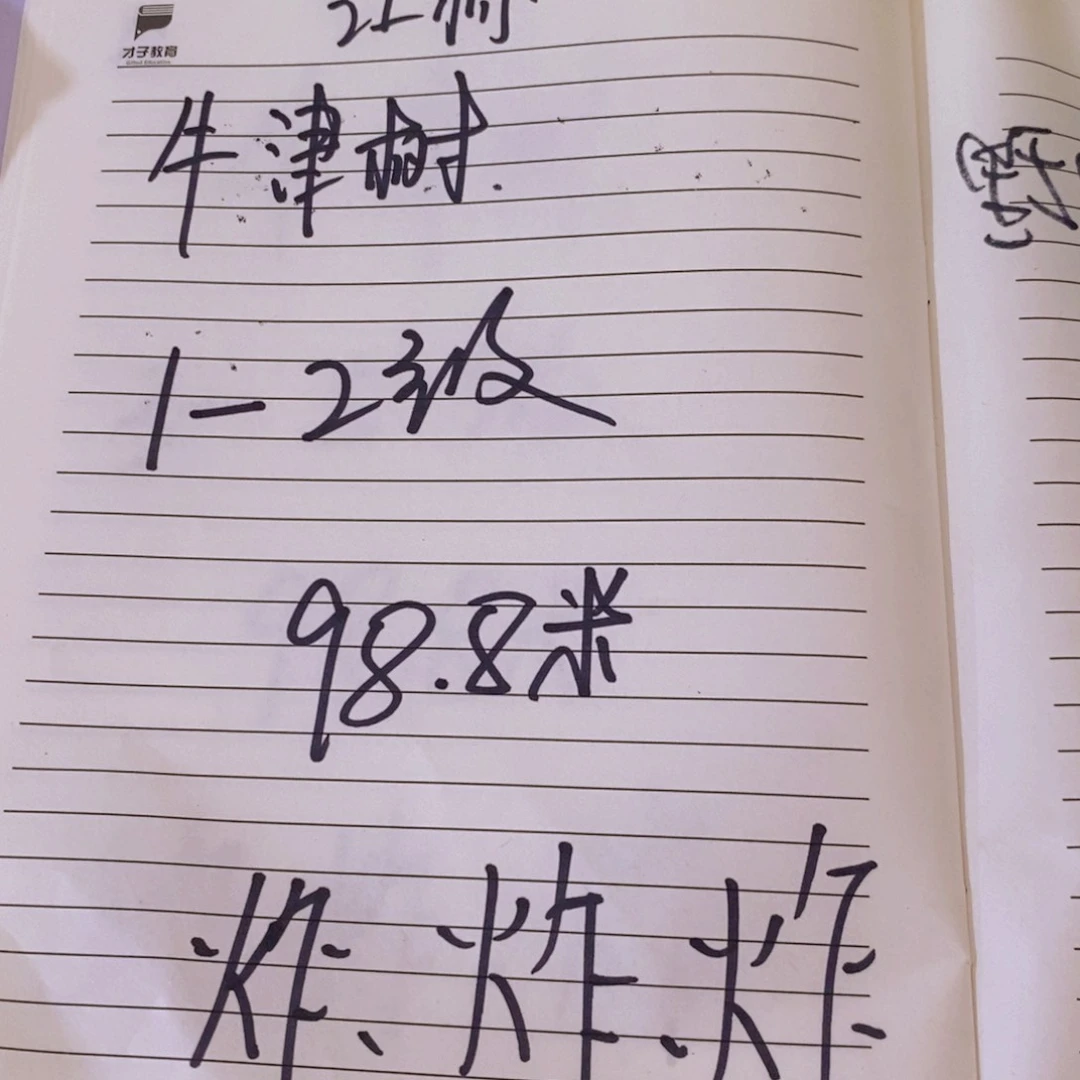 才子教育
牛津树.
1-2级
98.8米
炸、炸、炸